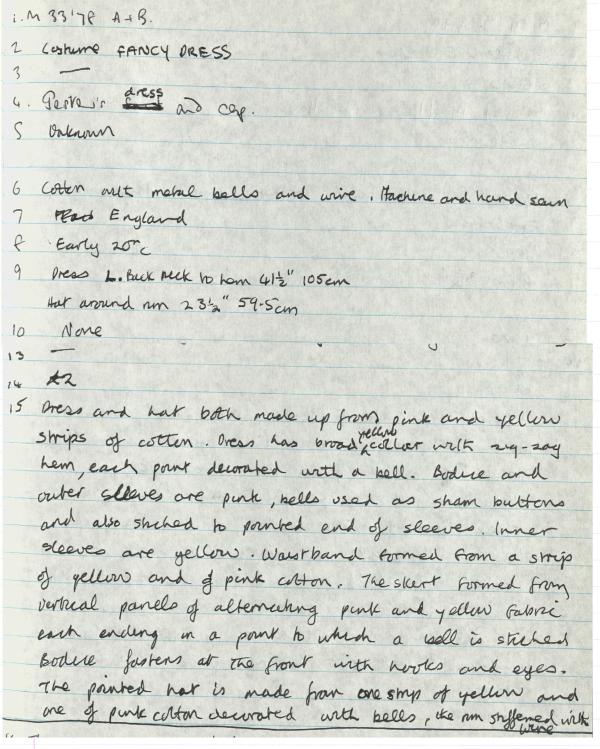 1. M 33'78 A+B.
2 Costume FANCY DRESS
3 —
4. Jester's dress and cap.
5 Unknown
6 Cotton with metal bells and wire. Machine and hand sewn
7 England
8 Early 20th c
9 Dress L. Back neck to hem 41½" 105cm
Hat around rim 23½" 59.5cm
10 None
13 —
14 2
15 Dress and hat both made up from pink and yellow
strips of cotton. Dress has broad yellow collar with zig-zag
hem, each point decorated with a bell. Bodice and
outer sleeves are pink, bells used as sham buttons
and also stiched to pointed end of sleeves. Inner
sleeves are yellow. Waistband formed from a strip
of yellow and of pink cotton. The skirt formed from
vertical panels of alternating pink and yellow fabric
each ending in a point to which a bell is stiched
Bodice fastens at the front with hooks and eyes.
The pointed hat is made from one strip of yellow and
one of pink cotton decorated with bells, the rim stiffened with
wire